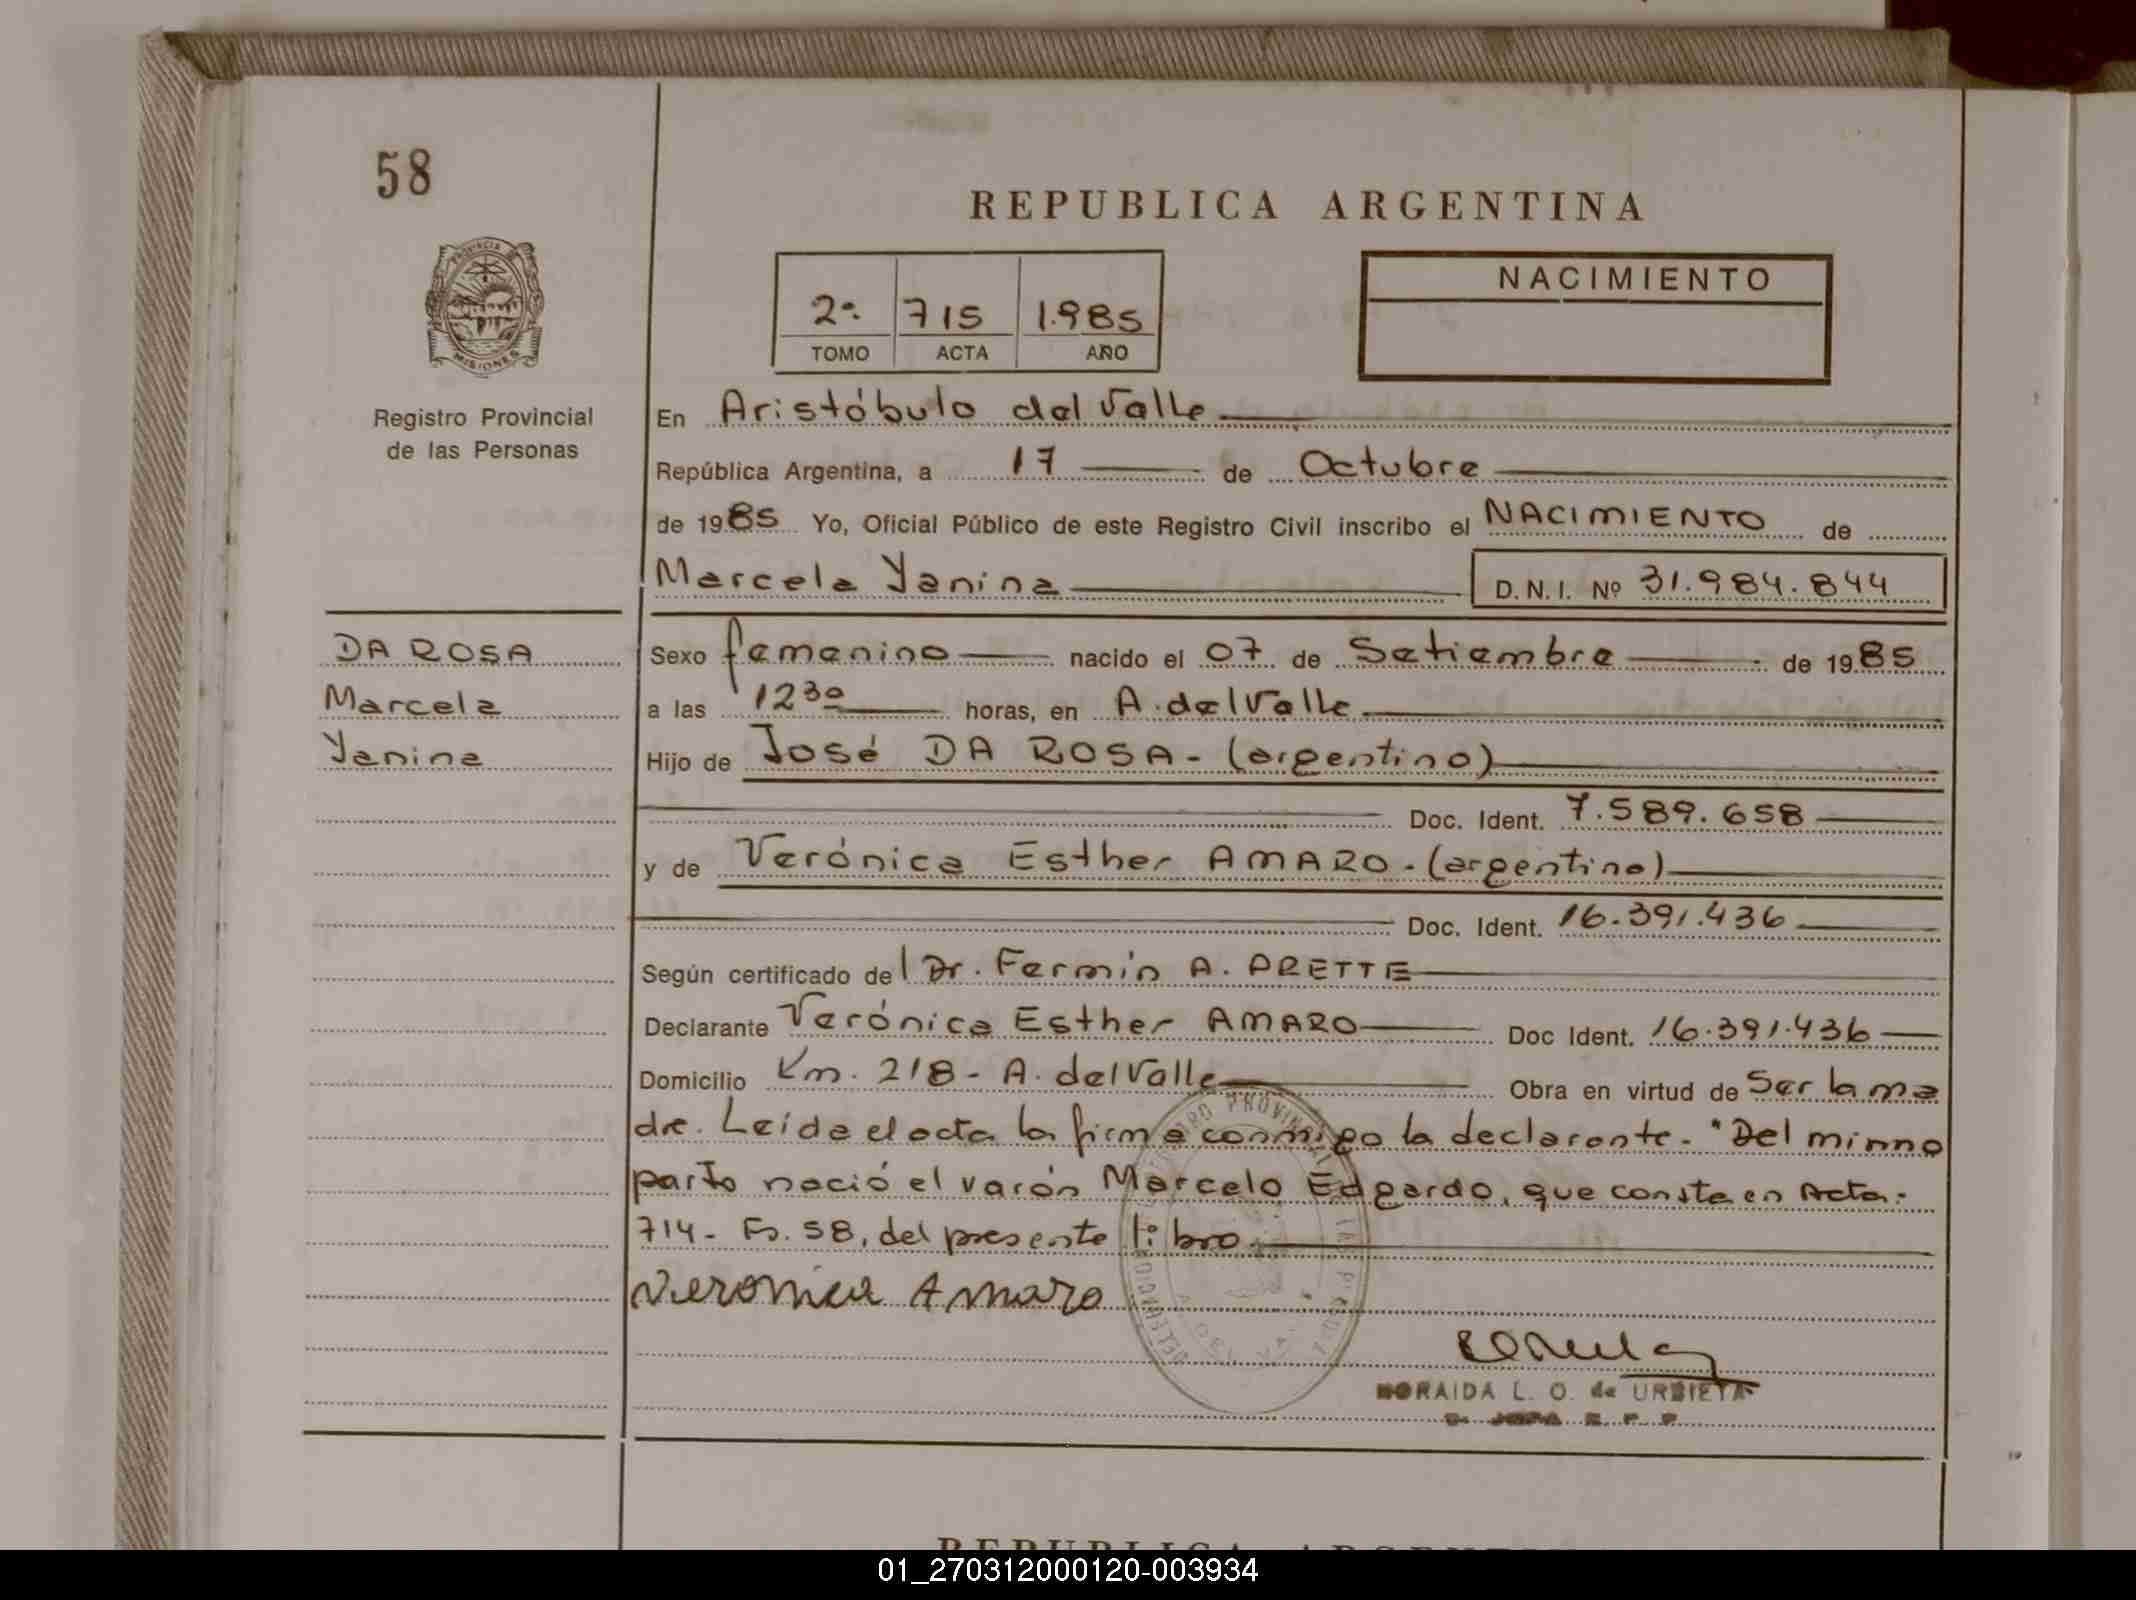 58
REPUBLICA ARGENTINA
PROVINCIA DE
MISIONES
Registro Provincial
de las Personas
2º. 715 1.985
TOMO ACTA AÑO
NACIMIENTO
En Aristóbulo del Valle
República Argentina, a 17 de Octubre
de 1985 Yo, Oficial Público de este Registro Civil inscribo el NACIMIENTO de
Marcela Yanina D.N.I. Nº 31.984.844
DA ROSA
Marcela
Yanina
Sexo femenino nacido el 07 de Setiembre de 1985
a las 12³⁰ horas, en A. del Valle
Hijo de José DA ROSA - (argentino)
Doc. Ident. 7.589.658
y de Verónica Esther AMARO - (argentina)
Doc. Ident. 16.391.436
Según certificado de Dr. Fermín A. PRETTE
Declarante Verónica Esther AMARO Doc Ident. 16.391.436
Domicilio Km. 218 - A. del Valle Obra en virtud de Ser la ma
dre. Leída el acta la firma conmigo la declarante. "Del mismo
parto nació el varón Marcelo Edgardo, que consta en Acta:
714 - Fs. 58, del presente libro.
Veronica Amaro
NORAIDA L. O. de URBIETA
REPUBLICA ARGENTINA
01_270312000120-003934